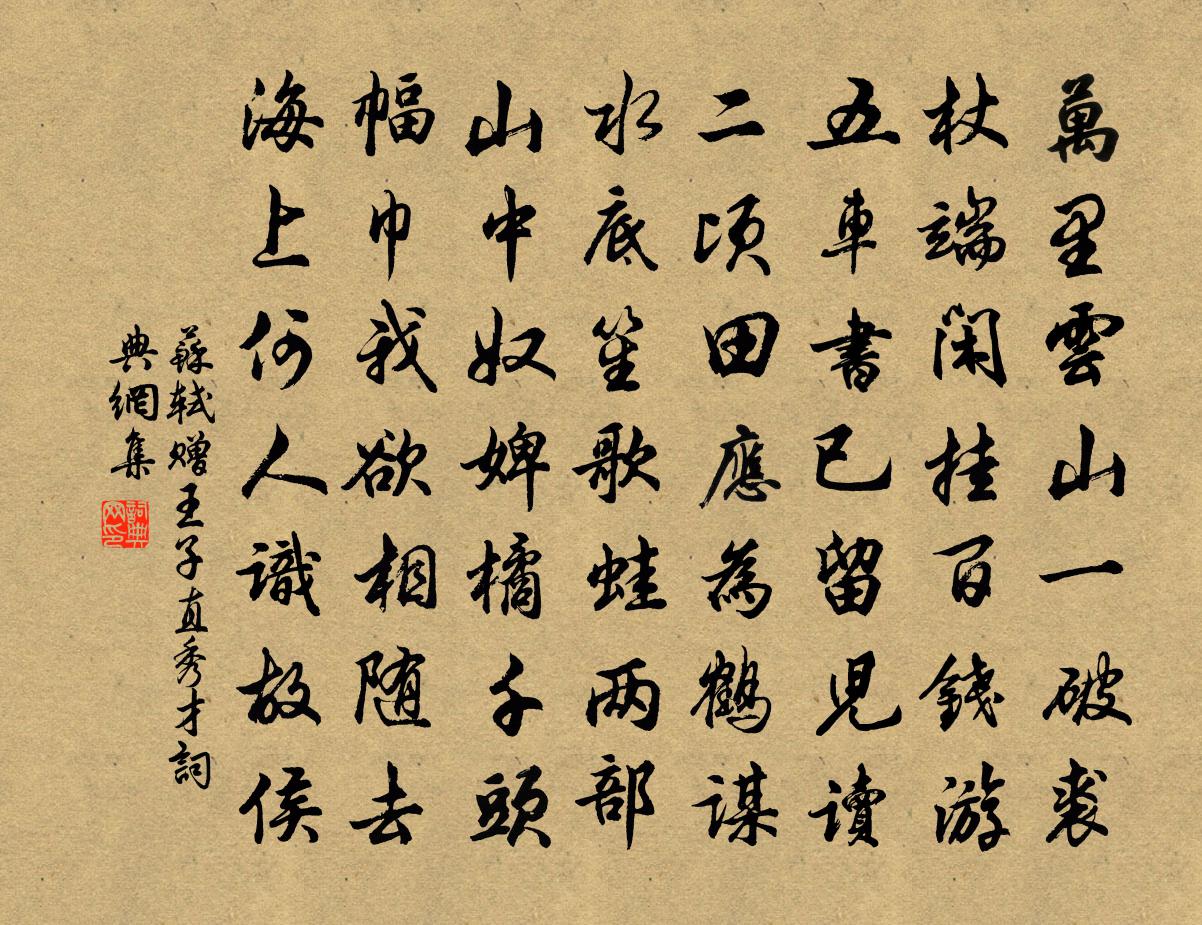 萬里雲山一破裘
杖端閑挂百錢游
五車書已留兒讀
二頃田應為鶴謀
水底笙歌蛙兩部
山中奴婢橘千頭
幅巾我欲相隨去
海上何人識故侯
蘇軾贈王子直秀才詞
典網集
詞典
网印